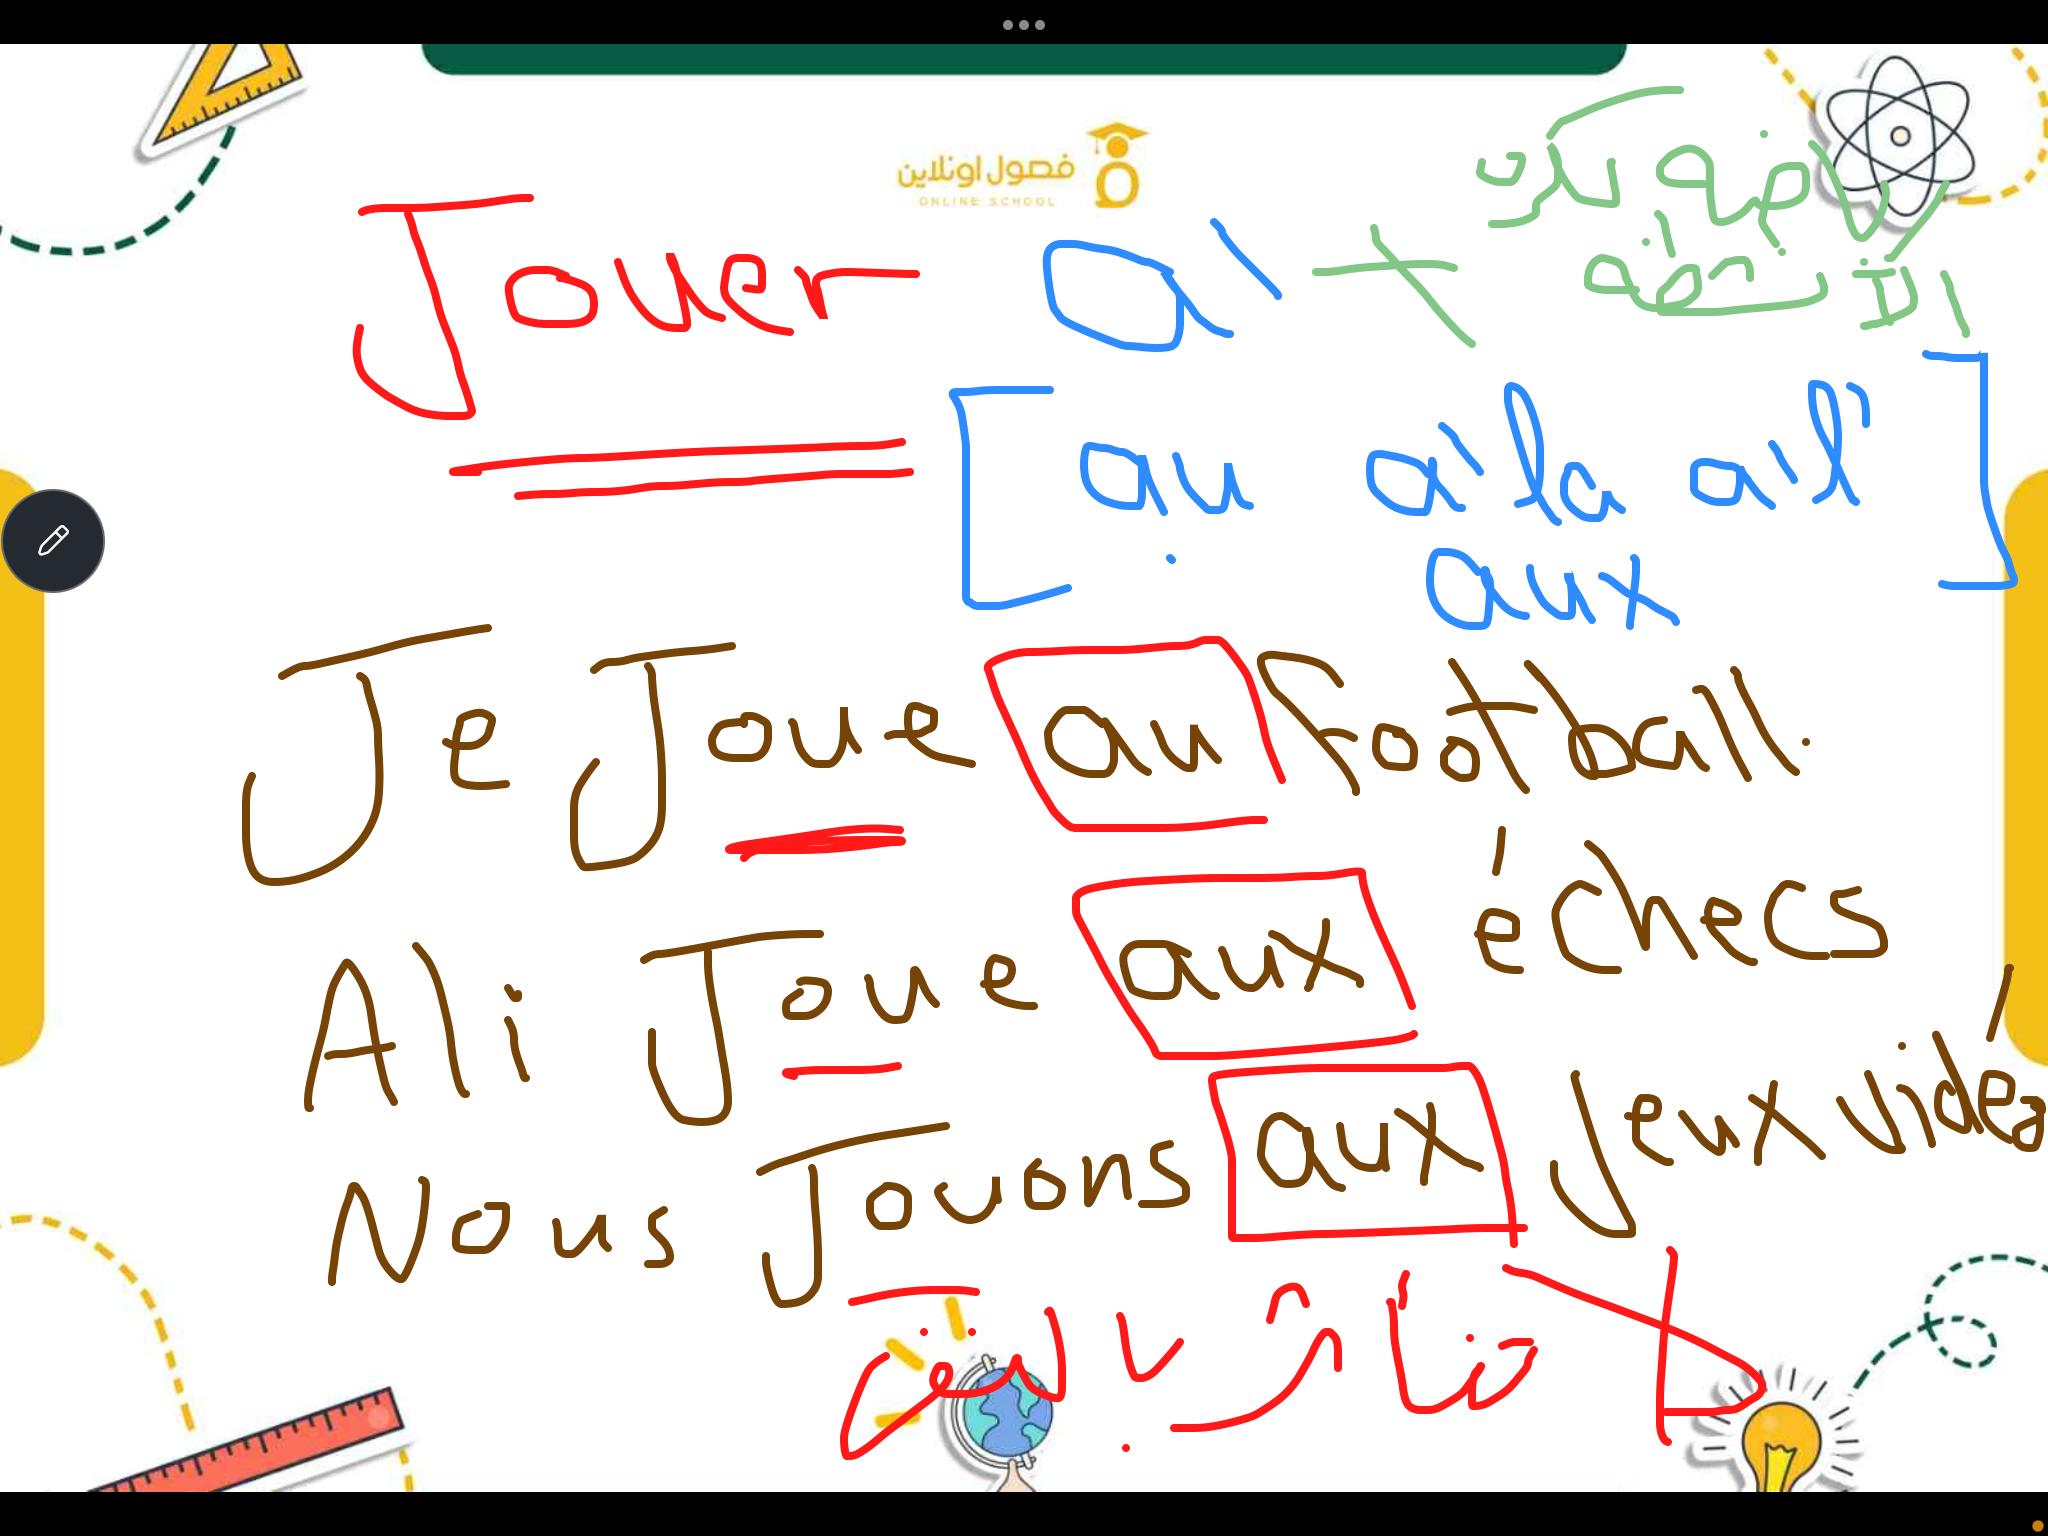 فصول اونلاين
ONLINE SCHOOL
Jouer à + رياضة كرات
الانشطة
[ au à la à l' ]
aux
Je Joue au football.
Ali Joue aux échecs
Nous Jouons aux Jeux vidéo